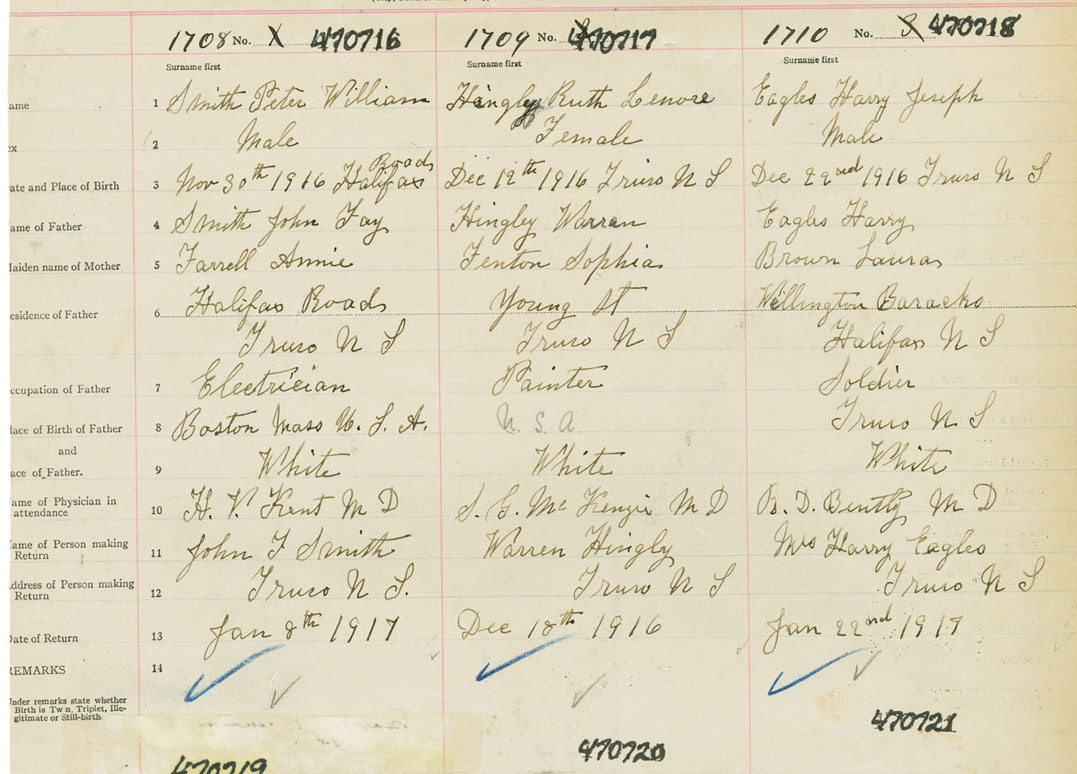 1708 No. X 470716
1709 No. 470717
1710 No. 470718
Surname first
Surname first
Surname first
ame 1 Smith Peter William
Hingley Ruth Lenore
Eagles Harry Joseph
ex 2 Male
Female
Male
ate and Place of Birth 3 Nov 30th 1916 Halifax Road
Dec 12th 1916 Truro N S
Dec 22nd 1916 Truro N S
ame of Father 4 Smith John Fay
Hingley Warren
Eagles Harry
aiden name of Mother 5 Farrell Annie
Fenton Sophia
Brown Laura
esidence of Father 6 Halifax Road
Young St
Wellington Baracks
Truro N S
Truro N S
Halifax N S
ccupation of Father 7 Electrician
Painter
Soldier
lace of Birth of Father 8 Boston Mass U. S. A.
U. S. A.
Truro N S
and
ace of Father. 9 White
White
White
ame of Physician in
attendance 10 H. V. Kent M D
S. G. Mc Kenzie M D
R. D. Bently M D
ame of Person making
Return 11 John F Smith
Warren Hingly
Mrs Harry Eagles
ddress of Person making
Return 12 Truro N S.
Truro N S
Truro N S
ate of Return 13 Jan 8th 1917
Dec 18th 1916
Jan 22nd 1917
REMARKS 14
nder remarks state whether
Birth is Twn, Triplet, Ille-
gitimate or Still-birth.
470719
470720
470721